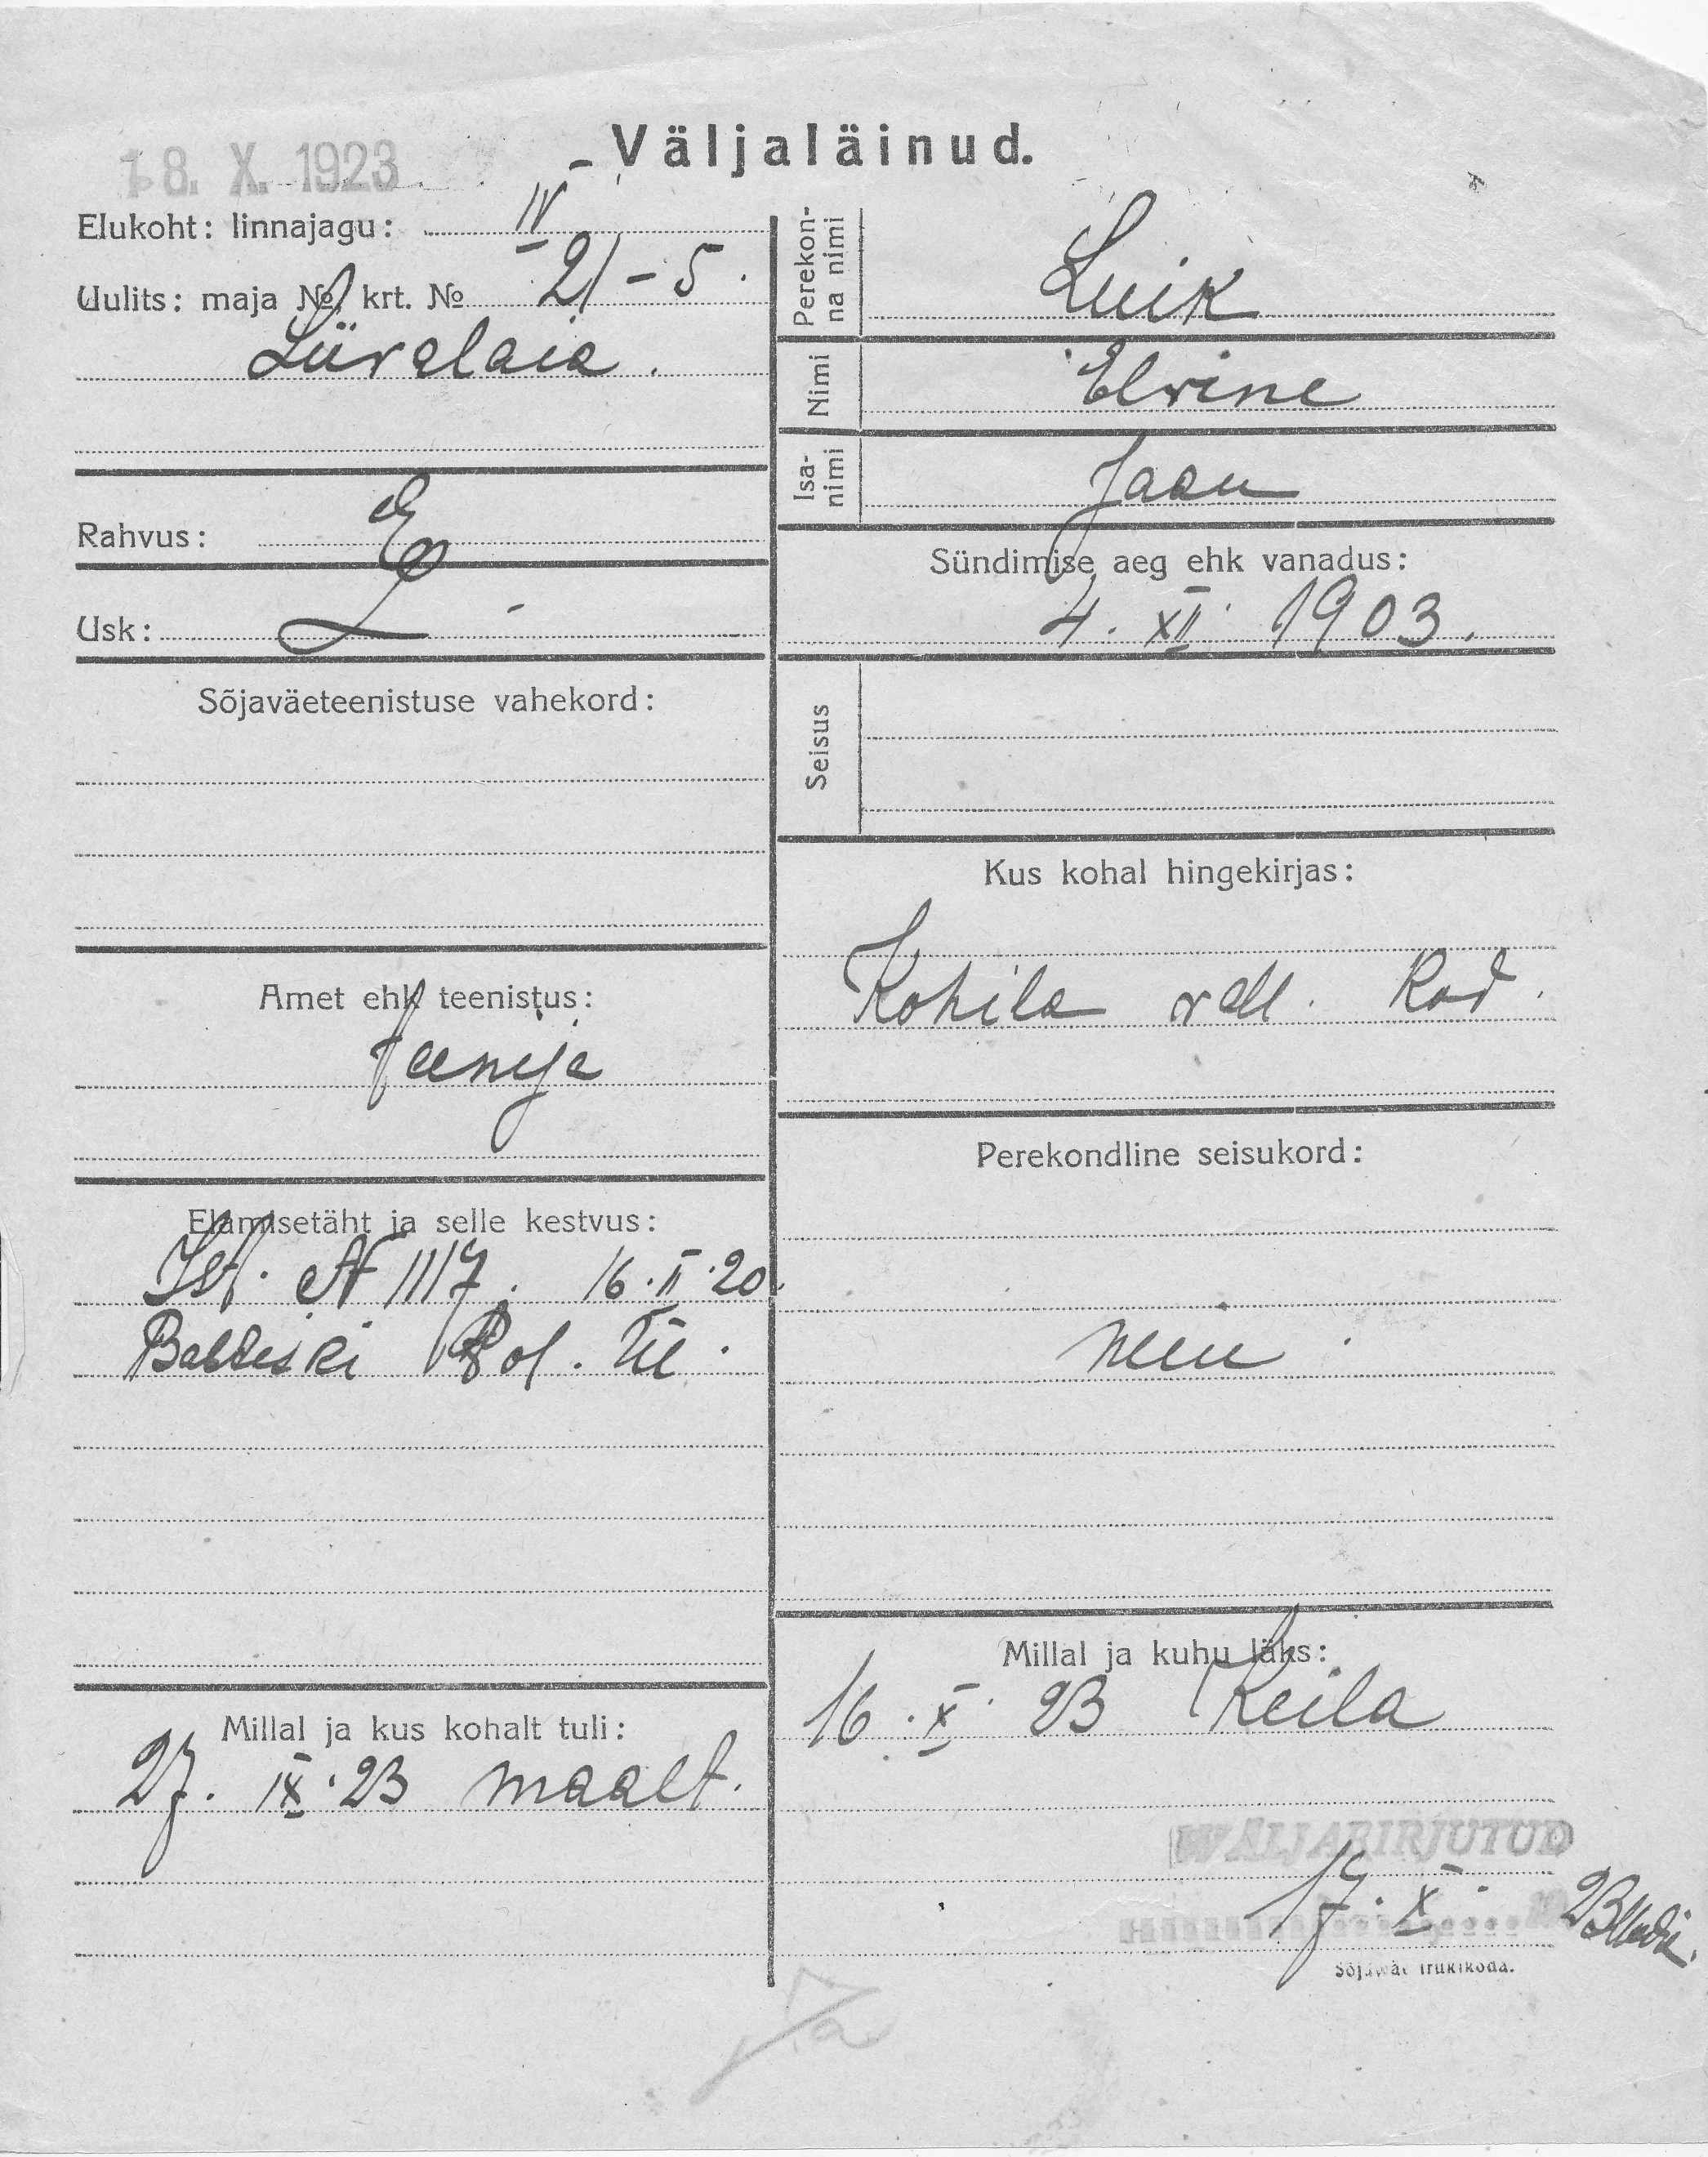 18. X. 1923
Väljaläinud.
Elukoht: linnajagu: IV
Uulits: maja № krt. № 21-5.
Liivalaia.
Rahvus: E
Usk: L
Sõjaväeteenistuse vahekord:
Amet ehk teenistus:
teenija
Elamisetäht ja selle kestvus:
Ist. № 1117. 16.II.20.
Baltiski Pol. Ül.
Millal ja kus kohalt tuli:
27. IX.23 maalt.
Perekon-
na nimi
Luik
Nimi
Elvine
Isa-
nimi
Jaan
Sündimise aeg ehk vanadus:
4. XII 1903.
Seisus
Kus kohal hingekirjas:
Kohila vall.
Perekondline seisukord:
neiu
Millal ja kuhu läks:
16.X.23 Keila
WÄLJAKIRJUTUD
17.X. 23
Sõjawäe trükikoda.